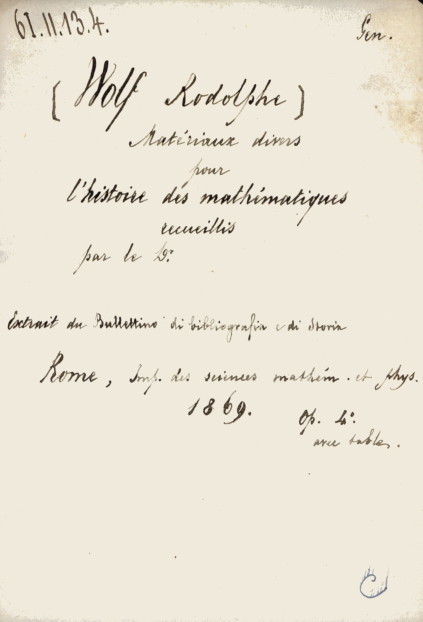 61.II.13.4.
Gen.
[Wolf Rodolphe]
Matériaux divers
pour
l'histoire des mathématiques
recueillis
par le Dr.
Extrait du Bullettino di bibliografia e di Storia
Rome, Imp. des sciences mathém. et phys.
1869.
Op. 4°.
avec tables.